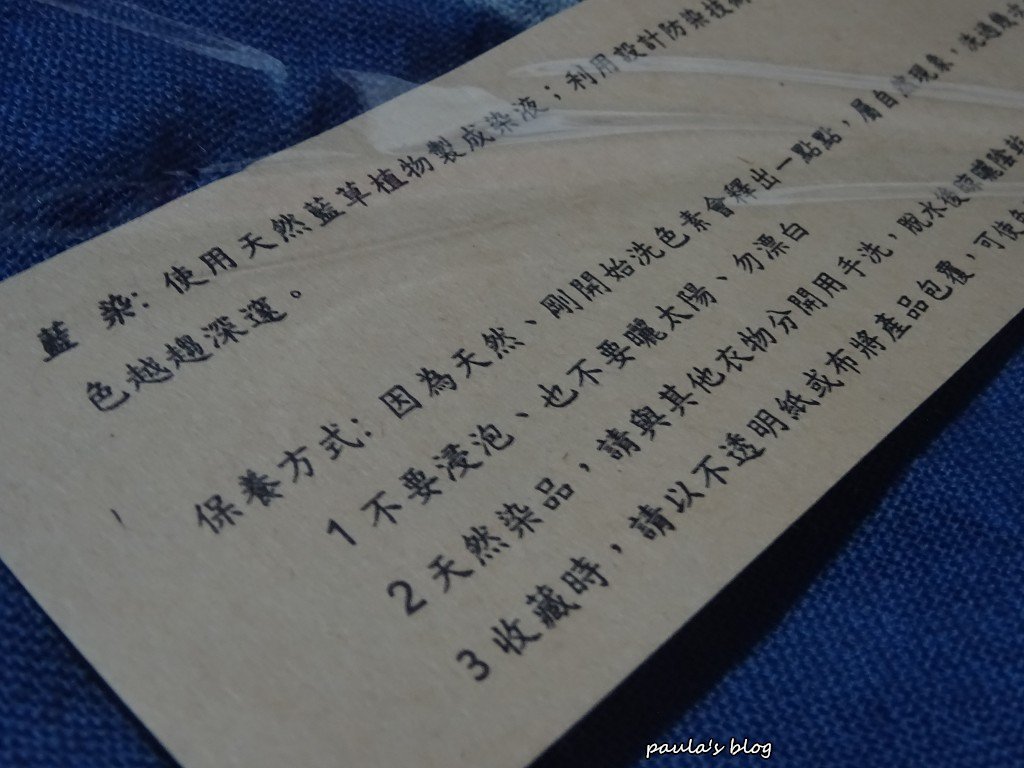 藍 染：使用天然藍草植物製成染液；利用設計防染技
色越趨深邃。
保養方式：因為天然、剛開始洗色素會釋出一點點，屬自然現象，洗過幾
1 不要浸泡、也不要曬太陽、勿漂白
2 天然染品，請與其他衣物分開用手洗，脫水後時曬陰
3 收藏時，請以不透明紙或布將產品包覆，可使
paula's blog